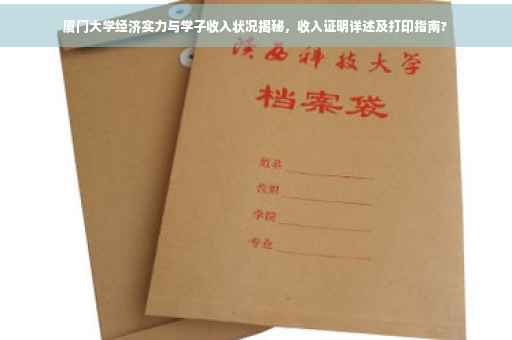 厦门大学经济实力与学子收入状况揭秘，收入证明详述及打印指南？
陕西科技大学
档案袋
姓名
学院
专业